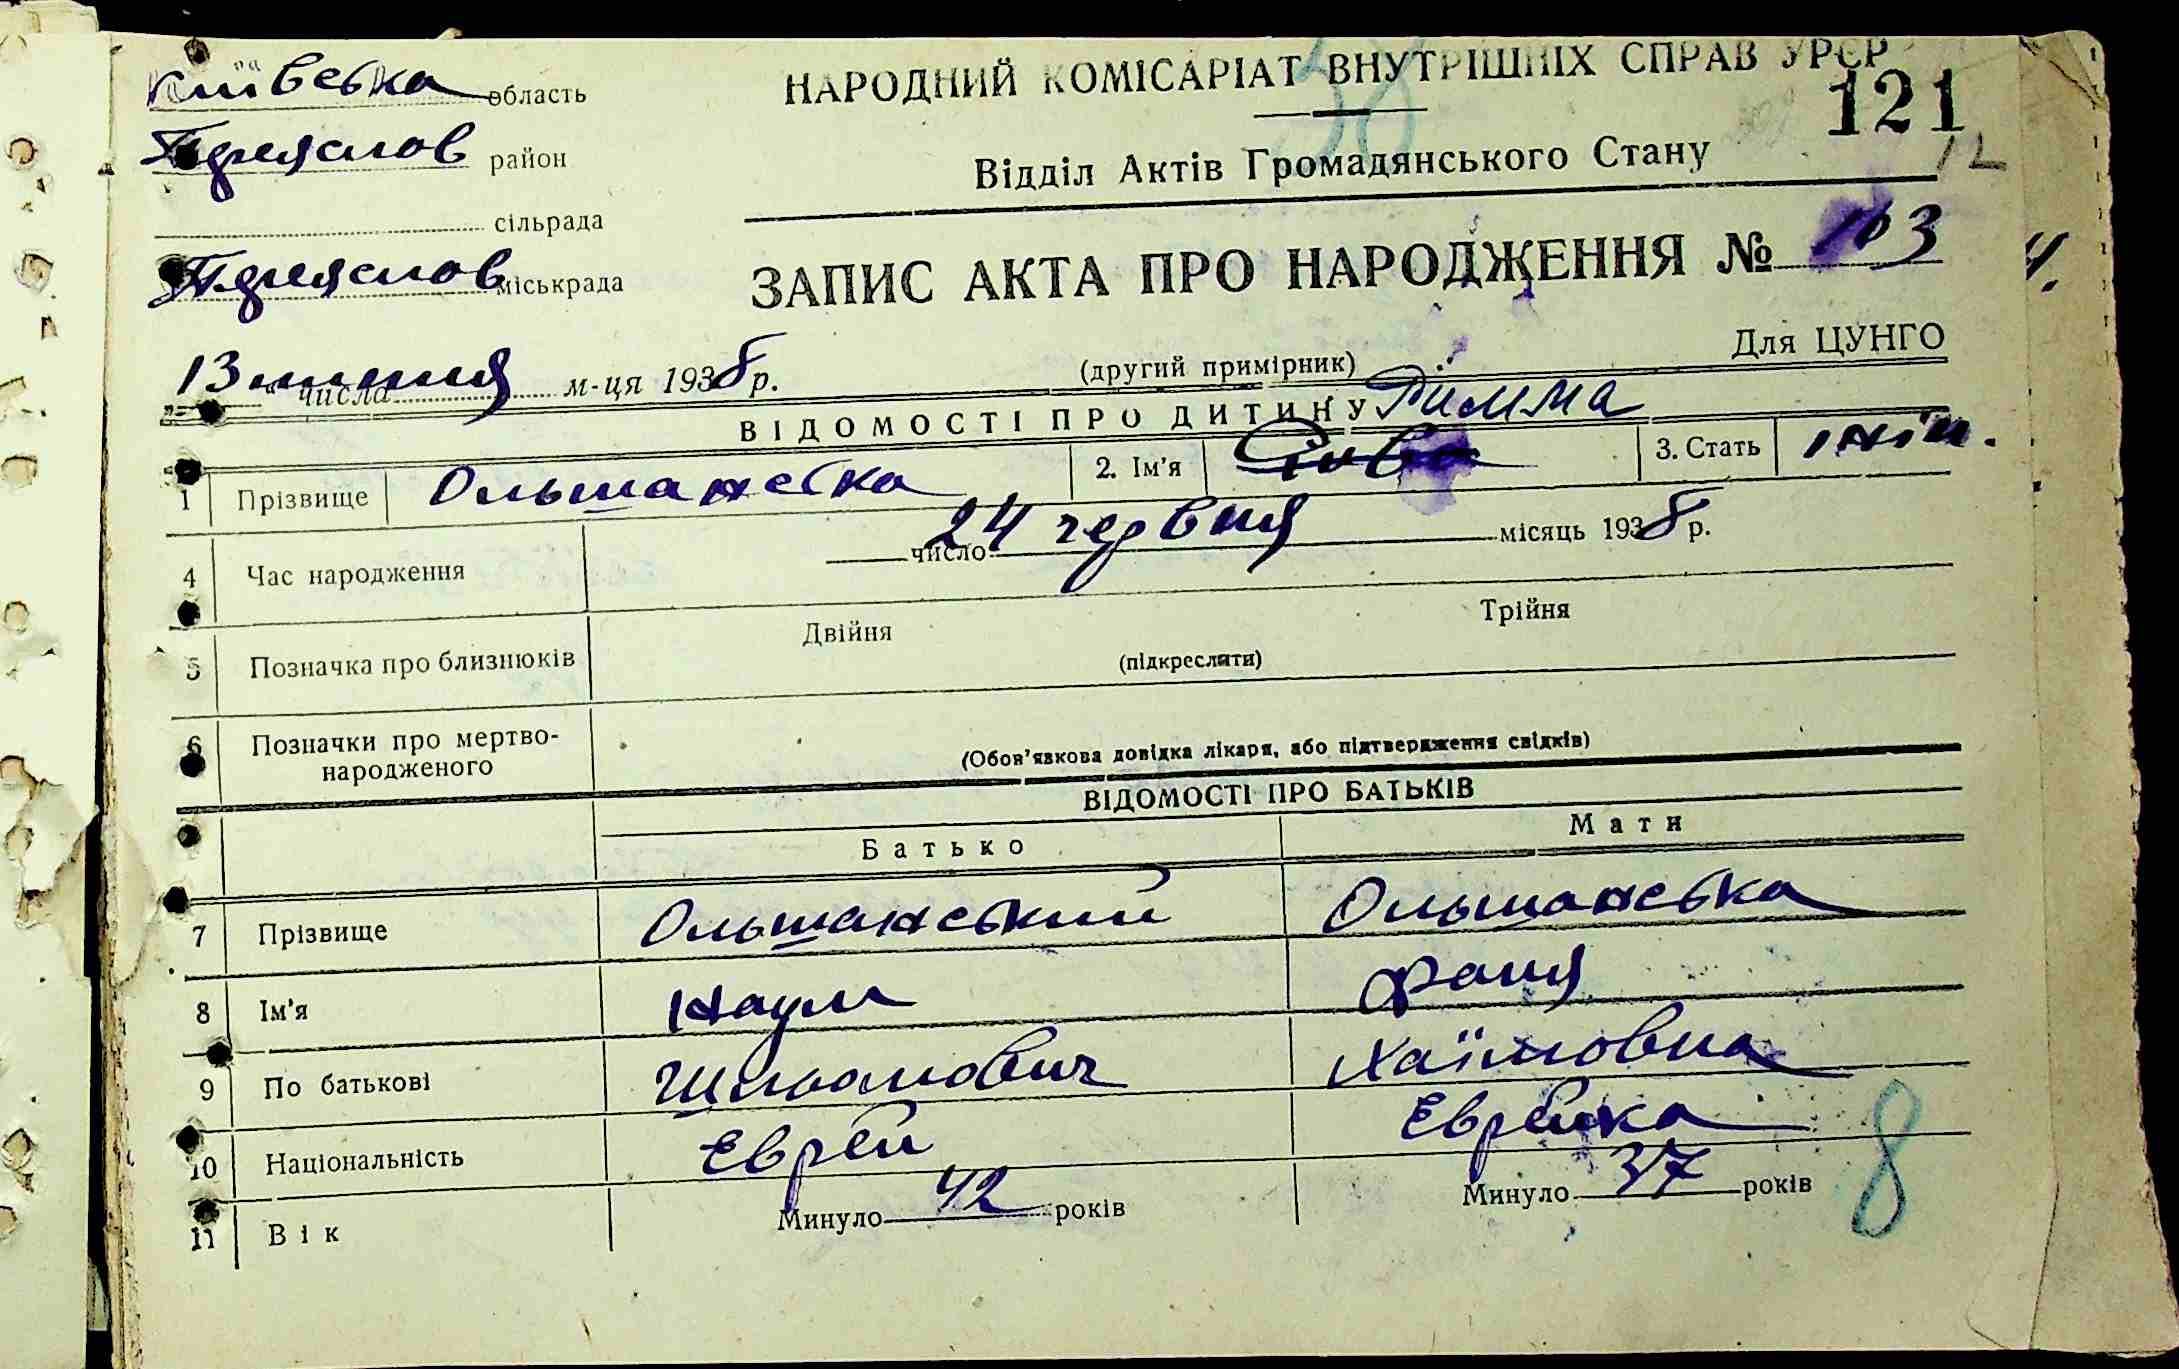 Київська область
НАРОДНИЙ КОМІСАРІАТ ВНУТРІШНІХ СПРАВ УРСР
121
12
Переяслов район
Відділ Актів Громадянського Стану
сільрада
Переяслов міськрада
ЗАПИС АКТА ПРО НАРОДЖЕННЯ № 103
13 числа липня м-ця 1938 р.
(другий примірник)
Для ЦУНГО
ВІДОМОСТІ ПРО ДИТИНУ Римма
1 Прізвище Ольшанська 2. Ім'я Рива 3. Стать жін.
4 Час народження 24 число червня місяць 1938 р.
5 Позначка про близнюків Двійня Трійня
(підкреслити)
6 Позначки про мертво-
народженого
(Обов'язкова довідка лікаря, або підтвердження свідків)
ВІДОМОСТІ ПРО БАТЬКІВ
Батько Мати
7 Прізвище Ольшанський Ольшанська
8 Ім'я Наум Фаня
9 По батькові Шльомович Хаїмовна
10 Національність Еврей Еврейка
11 Вік Минуло 42 років Минуло 37 років
8